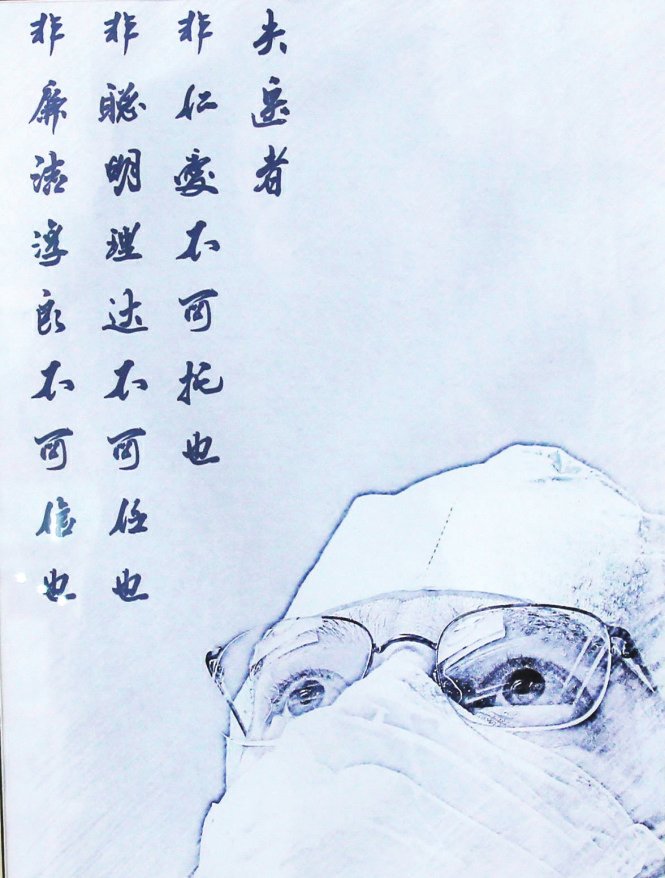 夫医者
非仁爱不可托也
非聪明理达不可任也
非廉洁淳良不可信也